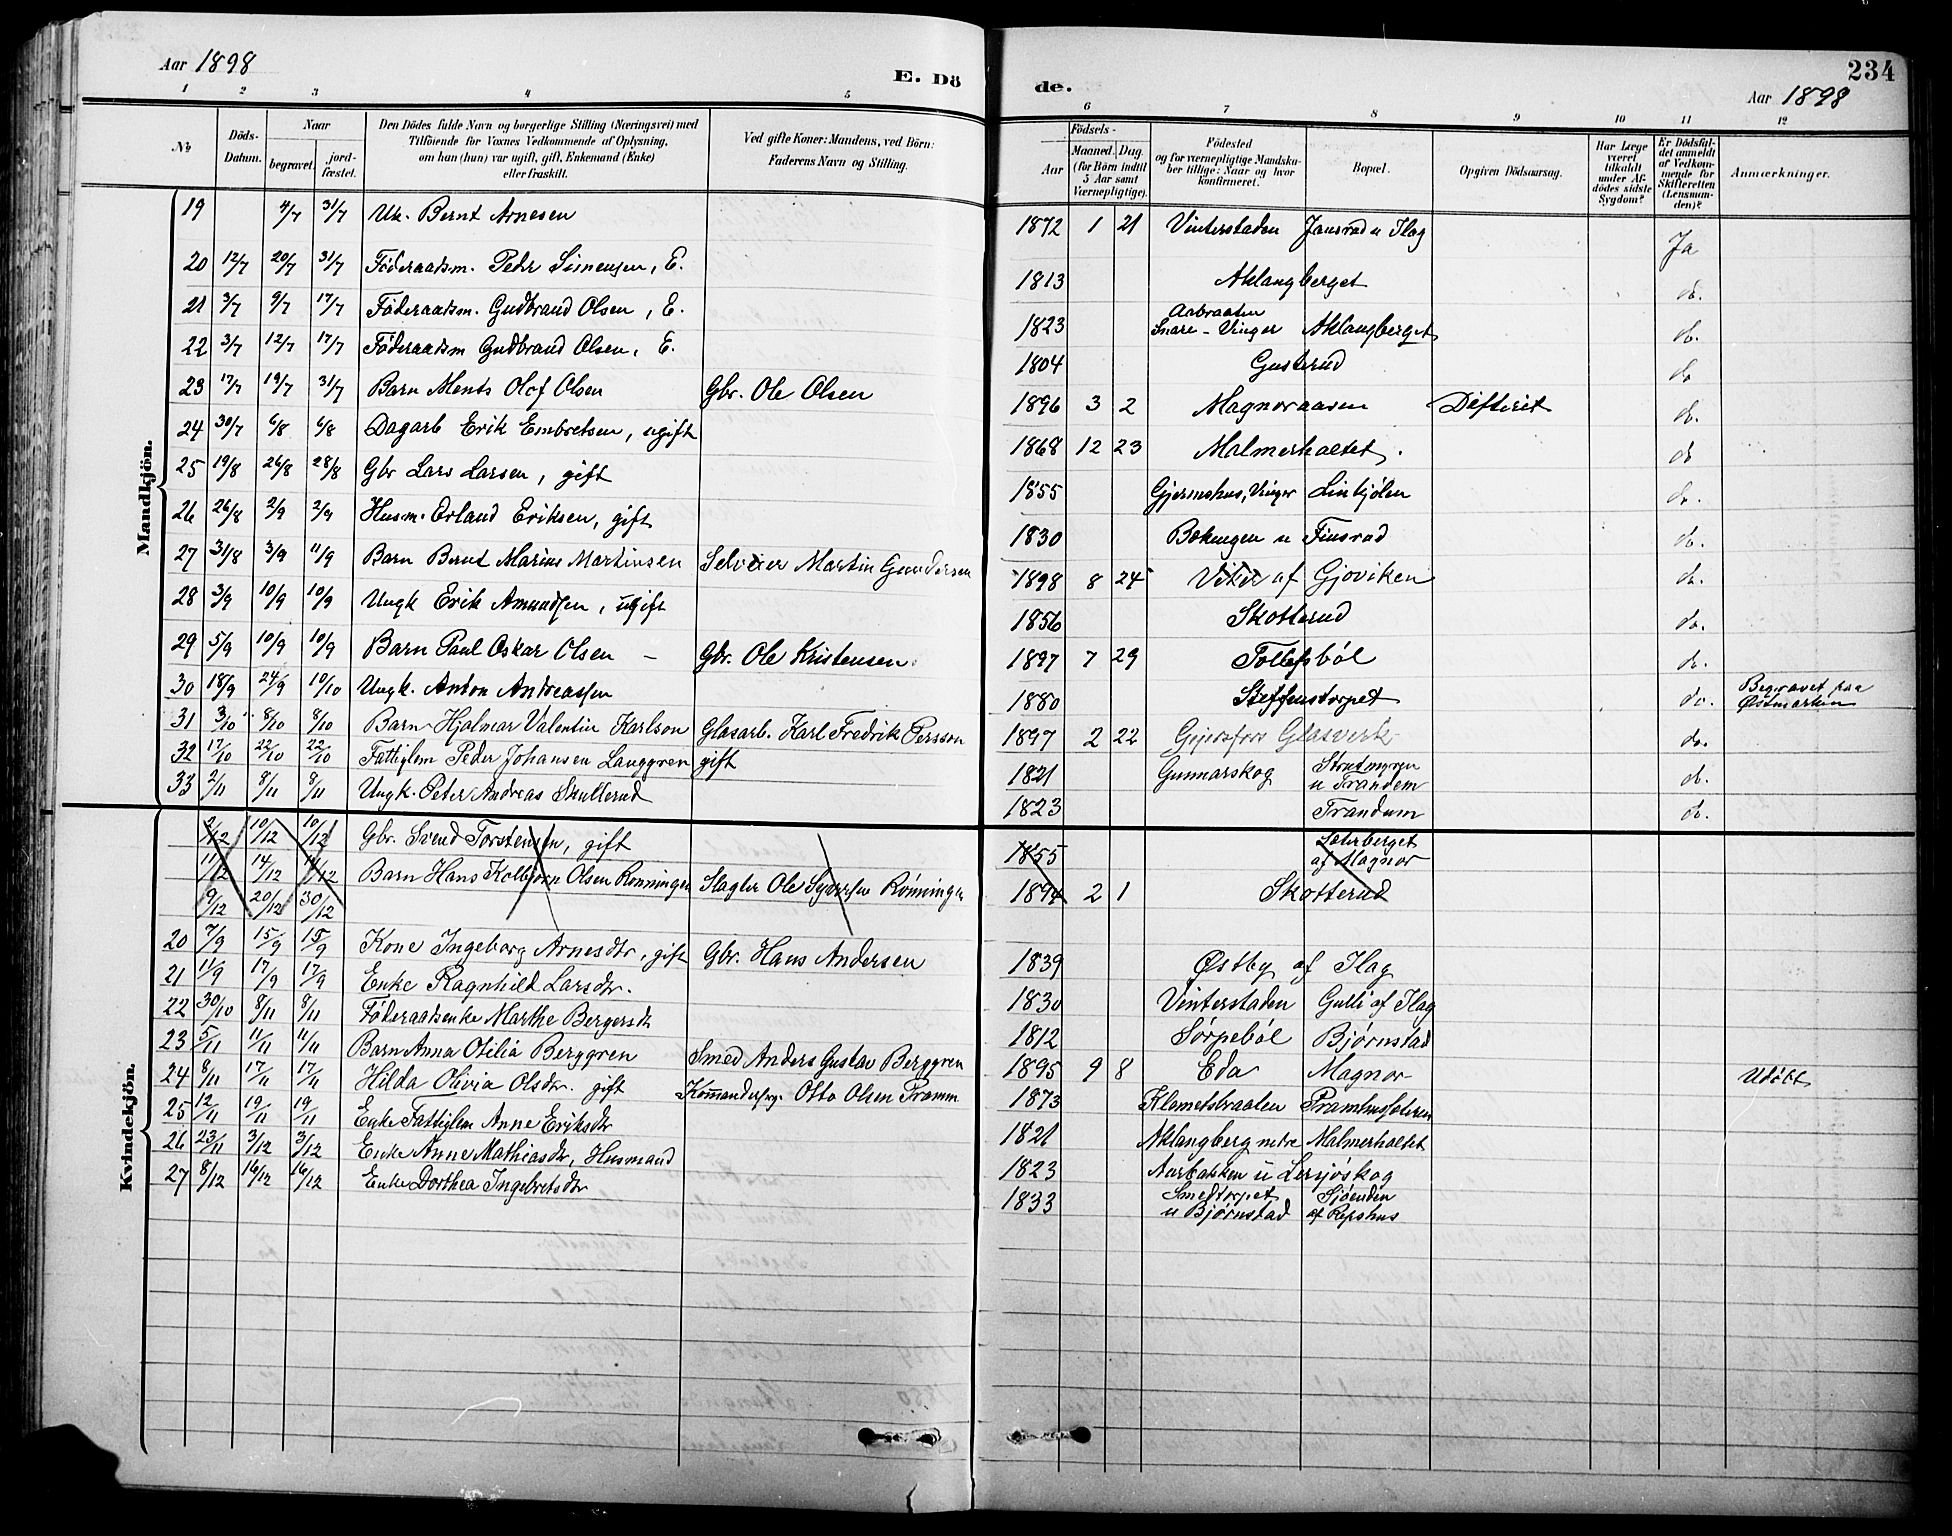 Aar 1898
E. Dö
de.
234
Aar 1898
1 2 3 4 5 6 7 8 9 10 11 12
№
Döds-Datum.
Naar
begravet.
jord-fæstet.
Den Dödes fulde Navn og borgerlige Stilling (Næringsvei) med
Tilföiende for Voxnes Vedkommende af Oplysning,
om han (hun) var ugift, gift, Enkemand (Enke)
eller fraskilt.
Ved gifte Koner: Mandens, ved Börn:
Faderens Navn og Stilling.
Födsels-
Aar
Maaned. Dag.
(for Börn indtil
5 Aar samt
Værnepligtige).
Födested
og for værnepligtige Mandska-
ber tillige: Naar og hvor
konfirmeret.
Bopæl.
Opgiven Dödsaarsag.
Har Læge
været
tilkaldt
under Af-
dödes sidste
Sygdom?
Er Dödsfal-
det anmeldt
af Vedkom-
mende for
Skifteretten
(Lensman-
den)?
Anmærkninger.
Mandkjön.
19 4/7 31/7 Uk. Bernt Arnesen 1872 1 21 Vinterstaden Jansrud u Ilag Ja
20 12/7 20/7 31/7 Föderaadsm. Peder Simensen, E. 1813 Aklangberget do.
21 3/7 9/7 17/7 Föderaadsm. Gudbrand Olsen, E. 1823 Aabraaten Snare-Vinger Aklangberget do.
22 3/7 12/7 17/7 Föderaadsm Gudbrand Olsen, E. 1804 Gusterud do
23 17/7 19/7 31/7 Barn Ments Olof Olsen Gbr. Ole Olsen 1896 3 2 Magnoraasen Difterit do.
24 30/7 6/8 6/8 Dagarb Erik Embretsen, ugift 1868 12 23 Malmerholtet. do
25 19/8 26/8 28/8 Gbr Lars Larsen, gift 1855 Gjermshus, Vinger Linkjölen do.
26 26/8 2/9 2/9 Husm. Erland Eriksen, gift 1830 u Finsrud do.
27 31/8 3/9 11/9 Barn Bernt Marius Martinsen Selveier Martin Gundersen 1898 8 24 af Gjøviken do.
28 3/9 10/9 10/9 Ungk Erik Amundsen, ugift 1856 Skotterud do.
29 5/9 10/9 10/9 Barn Paul Oskar Olsen - Gbr. Ole Kristensen 1897 7 29 Tollefsböl do.
30 18/9 24/9 10/10 Ungk. Anton Andreassen 1880 Steffenstorpet do. Begravet paa Østmarken
31 3/10 8/10 8/10 Barn Hjalmar Valentin Karlson Glasarb. Karl Fredrik Persson 1897 2 22 Gjejersfors Glasverk do.
32 17/10 22/10 22/10 Fattiglem Peder Johansen Langgren gift 1821 Gunnarskog u Trandem do.
33 2/11 8/11 8/11 Ungk. Peter Andreas Skullerud 1823 Trandum do.
Kvindekjön.
2/12 10/12 10/12 Gbr. Svend Torstensen, gift 1855 Sæterberget af Magnor
11/12 14/12 14/12 Barn Hans Kolbjörn Olsen Rönningen Slagter Ole Syversen Rönningen 1894 2 1 Skotterud
9/12 20/12 30/12
20 7/9 15/9 15/9 Kone Ingeborg Arnesdtr, gift Gbr. Hans Andersen 1839 Østby af Ilag
21 11/9 17/9 17/9 Enke Ragnhild Larsdtr. 1830 Vinterstaden Gulli af Ilag
22 30/10 8/11 8/11 Föderaadsenke Marthe Bergersdt 1812 Sørpeböl Bjørnstad
23 5/11 11/11 11/11 Barn Anna Otilia Berggren Smed Anders Gustav Berggren 1895 9 8 Eda Magnor Udöbt
24 8/11 17/11 17/11 Hilda Olivia Olsdtr. gift Kommandersg. Otto Olsen Pramm 1873 Klometsbraaten Pramhussæteren
25 12/11 19/11 19/11 Enke Fattiglem Anne Eriksdtr 1821 Aklangberg nedre Malmerholtet
26 23/11 3/12 3/12 Enke Anne Mathiasdtr, Husmand 1823 Aarbakken u Lersjöskog
27 8/12 16/12 16/12 Enke Dorthea Ingebretsdtr 1833 Smedtorpet u Bjørnstad Sjöenden af Repshus